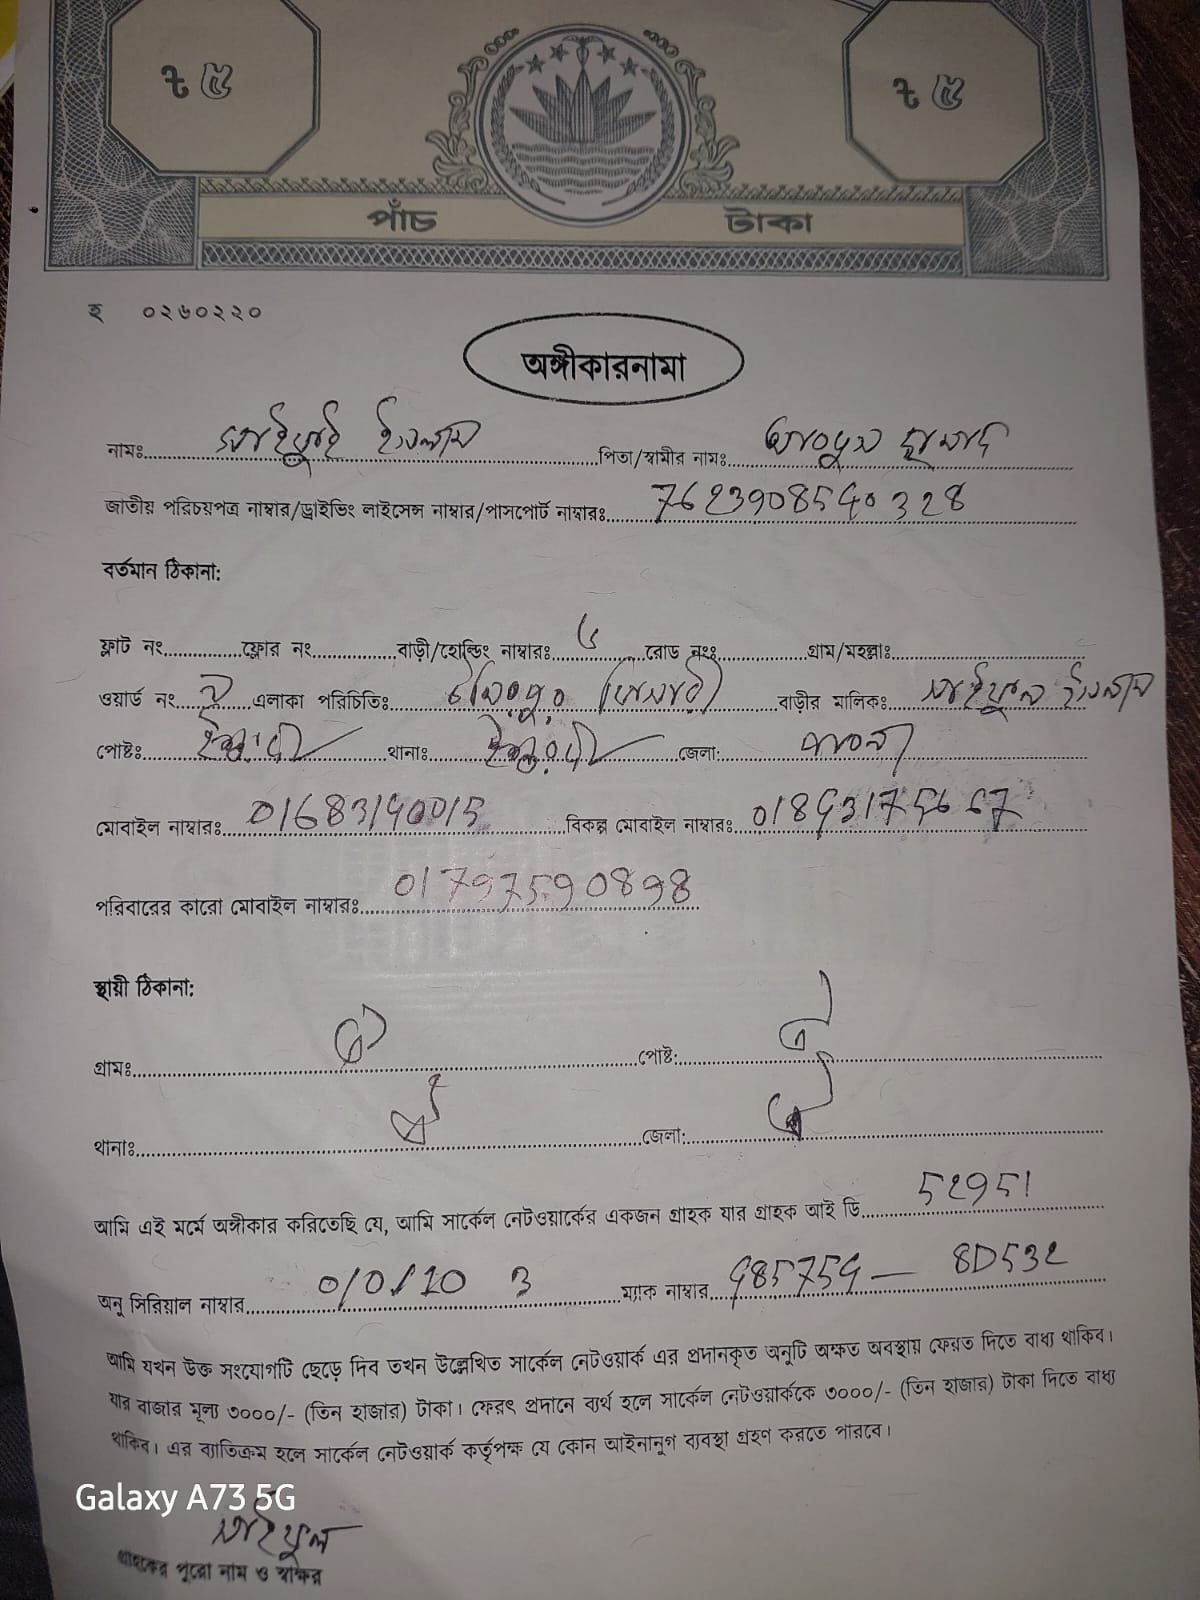 ৳ ৫ ৳ ৫
পাঁচ টাকা
হ ০২৬০২২০
অঙ্গীকারনামা
নামঃ সাইফুল ইসলাম পিতা/স্বামীর নামঃ আবদুস ছামাদ
জাতীয় পরিচয়পত্র নাম্বার/ড্রাইভিং লাইসেন্স নাম্বার/পাসপোর্ট নাম্বারঃ 7623908540328
বর্তমান ঠিকানা:
ফ্লাট নং ফ্লোর নং বাড়ী/হোল্ডিং নাম্বারঃ রোড নংঃ গ্রাম/মহল্লাঃ
ওয়ার্ড নং এলাকা পরিচিতিঃ বাড়ীর মালিকঃ সাইফুল ইসলাম
পোষ্টঃ ঈশ্বরদী থানাঃ ঈশ্বরদী জেলা: পাবনা
মোবাইল নাম্বারঃ 01683140015 বিকল্প মোবাইল নাম্বারঃ
পরিবারের কারো মোবাইল নাম্বারঃ
স্থায়ী ঠিকানা:
গ্রামঃ ঐ পোষ্ট: ঐ
থানাঃ ঐ জেলা: ঐ
আমি এই মর্মে অঙ্গীকার করিতেছি যে, আমি সার্কেল নেটওয়ার্কের একজন গ্রাহক যার গ্রাহক আই ডি 52951
অনু সিরিয়াল নাম্বার 0/0/10 3 ম্যাক নাম্বার 485754 - 8D532
আমি যখন উক্ত সংযোগটি ছেড়ে দিব তখন উল্লেখিত সার্কেল নেটওয়ার্ক এর প্রদানকৃত অনুটি অক্ষত অবস্থায় ফেরত দিতে বাধ্য থাকিব।
যার বাজার মূল্য ৩০০০/- (তিন হাজার) টাকা। ফেরৎ প্রদানে ব্যর্থ হলে সার্কেল নেটওয়ার্ককে ৩০০০/- (তিন হাজার) টাকা দিতে বাধ্য
থাকিব। এর ব্যাতিক্রম হলে সার্কেল নেটওয়ার্ক কর্তৃপক্ষ যে কোন আইনানুগ ব্যবস্থা গ্রহণ করতে পারবে।
Galaxy A73 5G
সাইফুল
গ্রাহকের পুরো নাম ও স্বাক্ষর